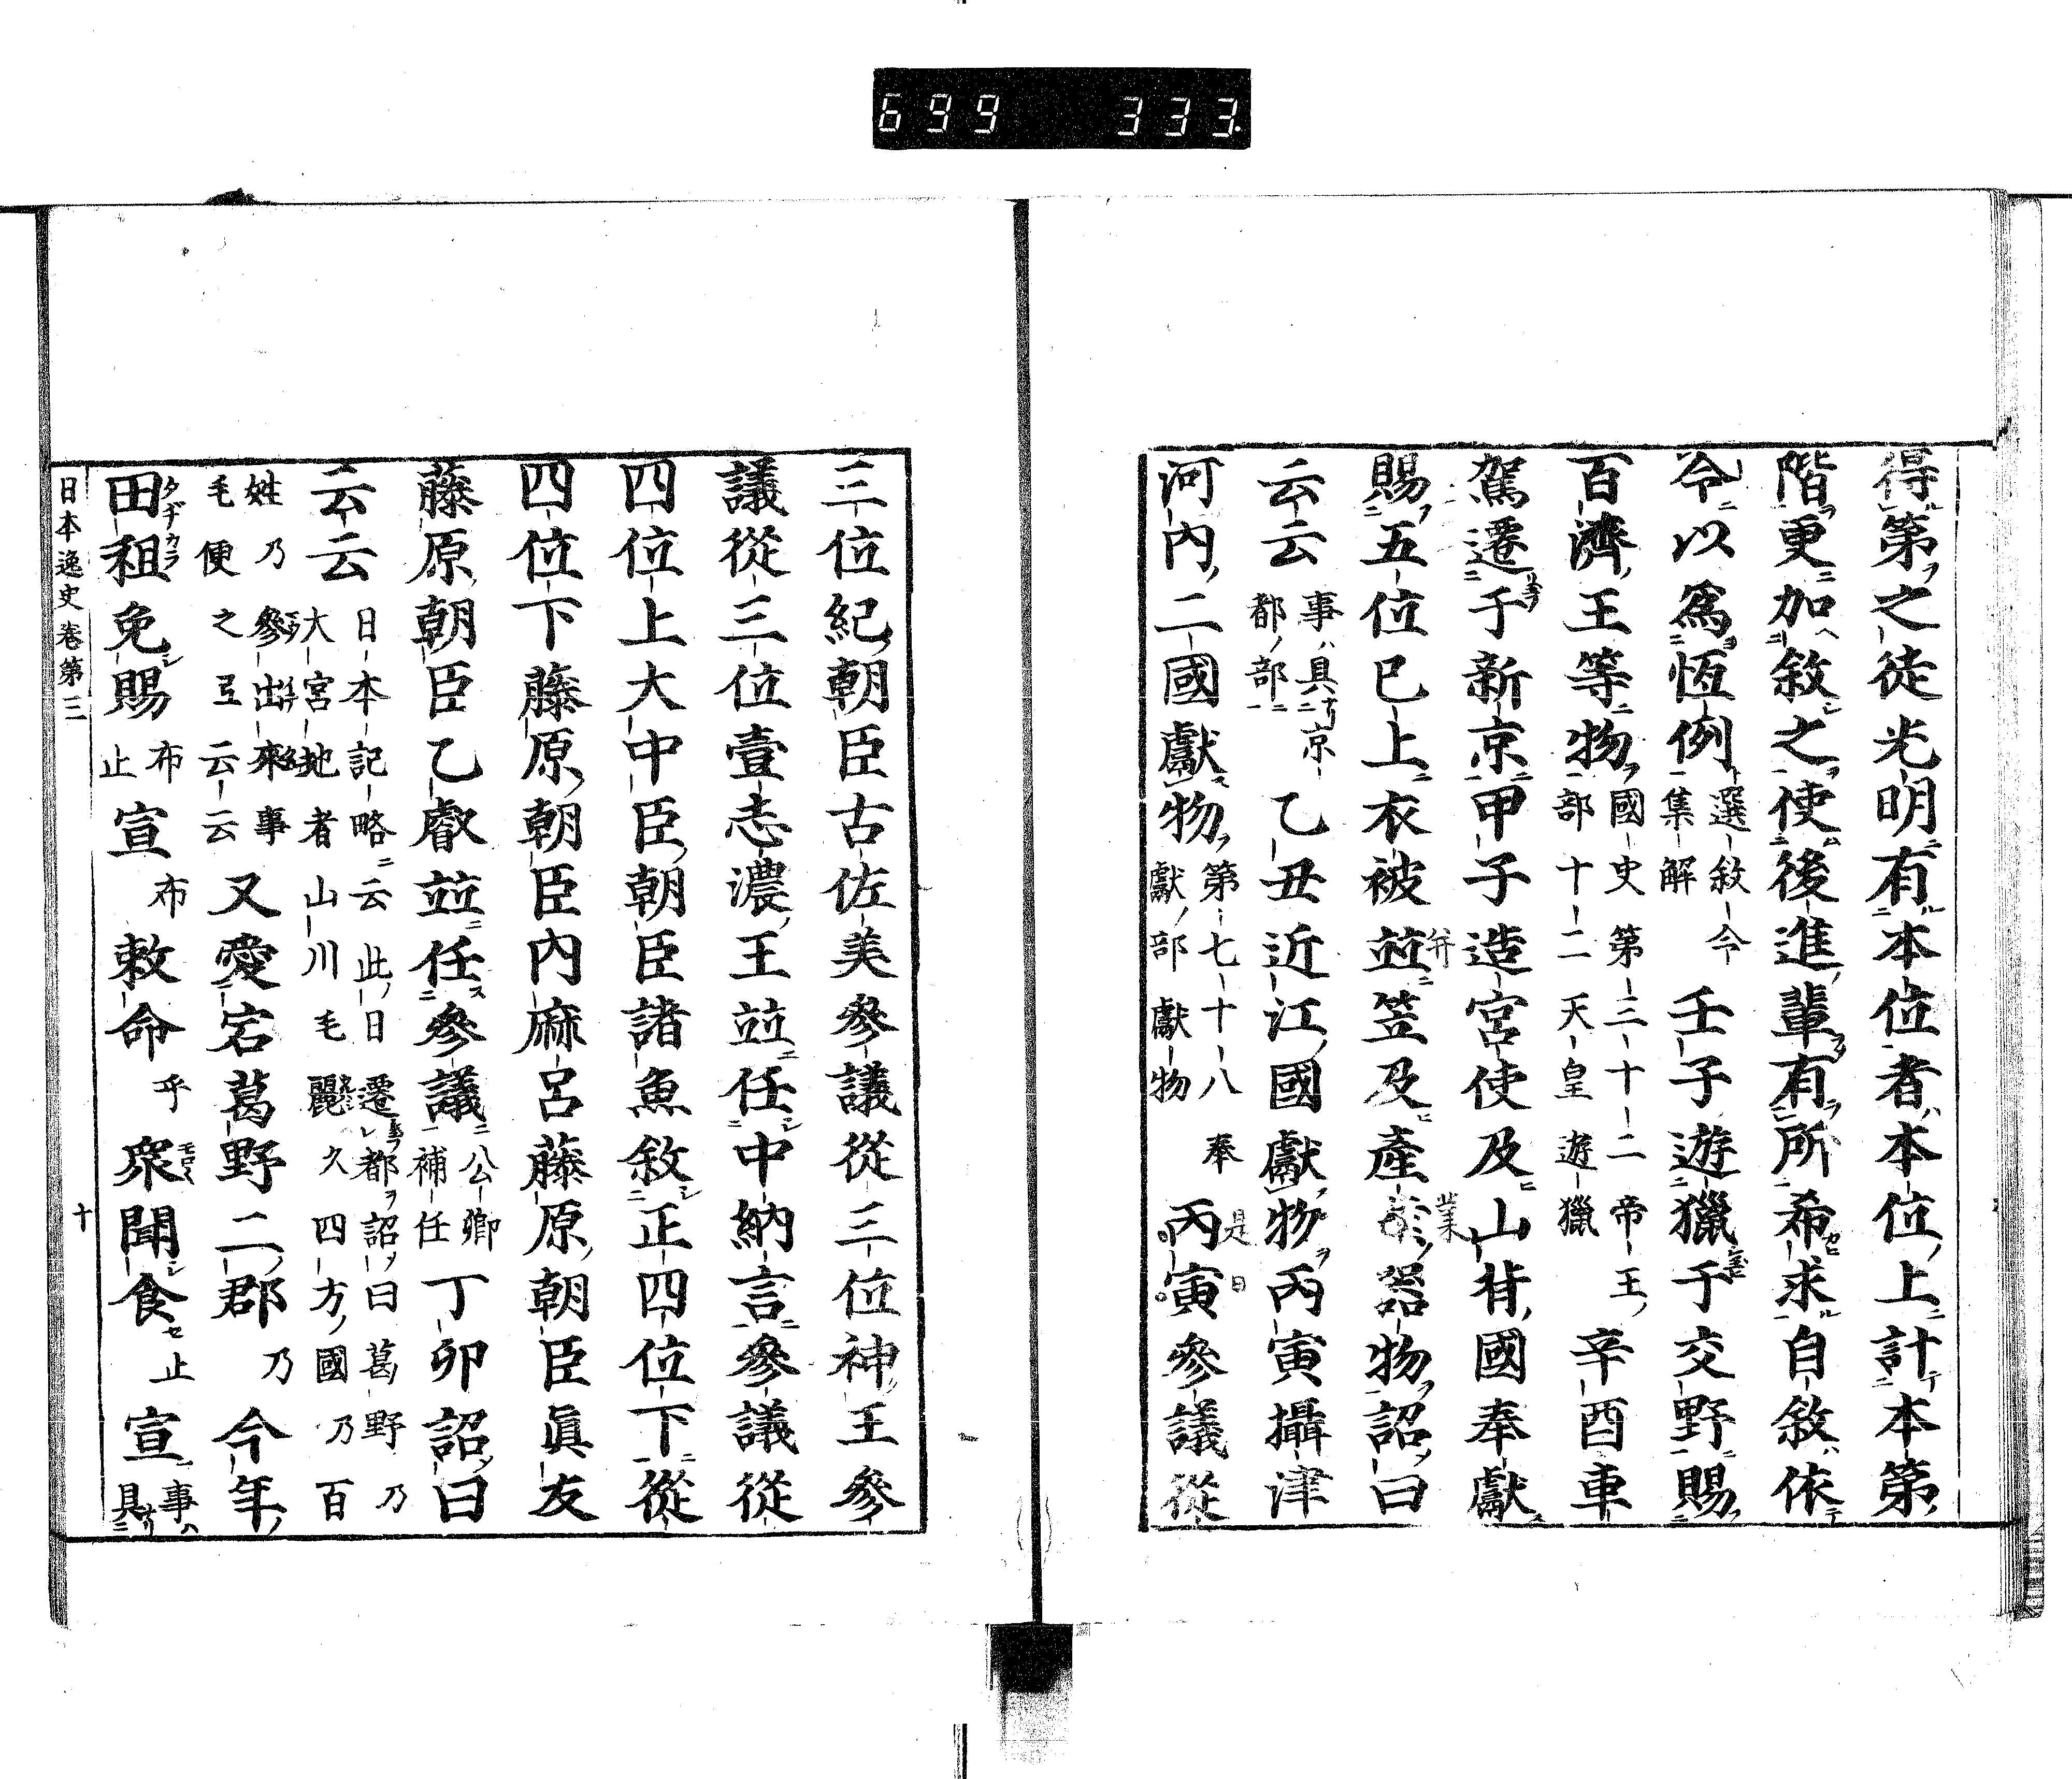 699 333
得第之徒光明有本位者本位上計本第
階更加敘之使後進輩有所希求自敘依
令以爲恆例選敘令集解壬子遊獵于交野賜
百濟王等物國史第三十二帝王部十二天皇遊獵辛酉車
駕遷于新京甲子造宮使及山背國奉獻
賜五位已上衣被竝笠及產器物詔曰
云云事具京都部乙丑近江國獻物丙寅攝津
河內二國獻物第七十八奉獻部獻物丙寅參議從
三位紀朝臣古佐美參議從三位神王參
議從三位壹志濃王竝任中納言參議從
四位上大中臣朝臣諸魚敘正四位下從
四位下藤原朝臣內麻呂藤原朝臣眞友
藤原朝臣乙叡竝任參議公卿補任丁卯詔曰
云云日本記略云此日遷都詔曰葛野乃大宮地者山川毛麗久四方國乃百
姓乃參出來事毛便之弖云云又愛宕葛野二郡乃今年
田租免賜布止宣布敕命乎衆聞食止宣事具
日本逸史卷第三 十